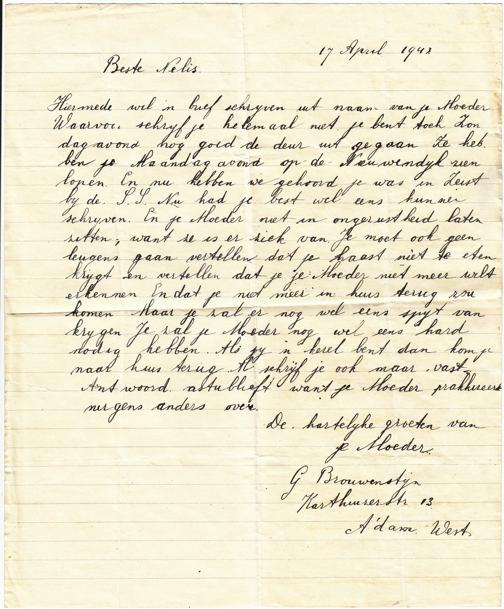 17 April 1943
Beste Nelis.
Hiermede wil 'n brief schryven uit naam van je Moeder
Waarvoor schryf je helemaal niet je bent toch Zon
dagavond nog goed de deur uit gegaan Ze heb
ben je Maandagavond op de Nieuwendyk zien
lopen. En nu hebben we gehoord je was in Zeist
by de S.S. Nu had je best wel eens kunnen
schryven. En je Moeder niet in ongerustheid laten
zitten, want ze is er ziek van. Je moet ook geen
leugens gaan vertellen dat je haast niet te eten
krygt en vertellen dat je je Moeder niet meer wilt
erkennen En dat je niet meer in huis terug zou
komen Maar je zal er nog wel eens spyt van
krygen Je zal je Moeder nog wel eens hard
nodig hebben. Als jy 'n kerel bent dan kom je
naar huis terug Al schrijf je ook maar vast
Antwoord astublieft want je Moeder prakkiseert
nergens anders over.
De hartelyke groeten van
je Moeder.
G Brouwenstyn
Karthuiserstr 13
A'dam. West